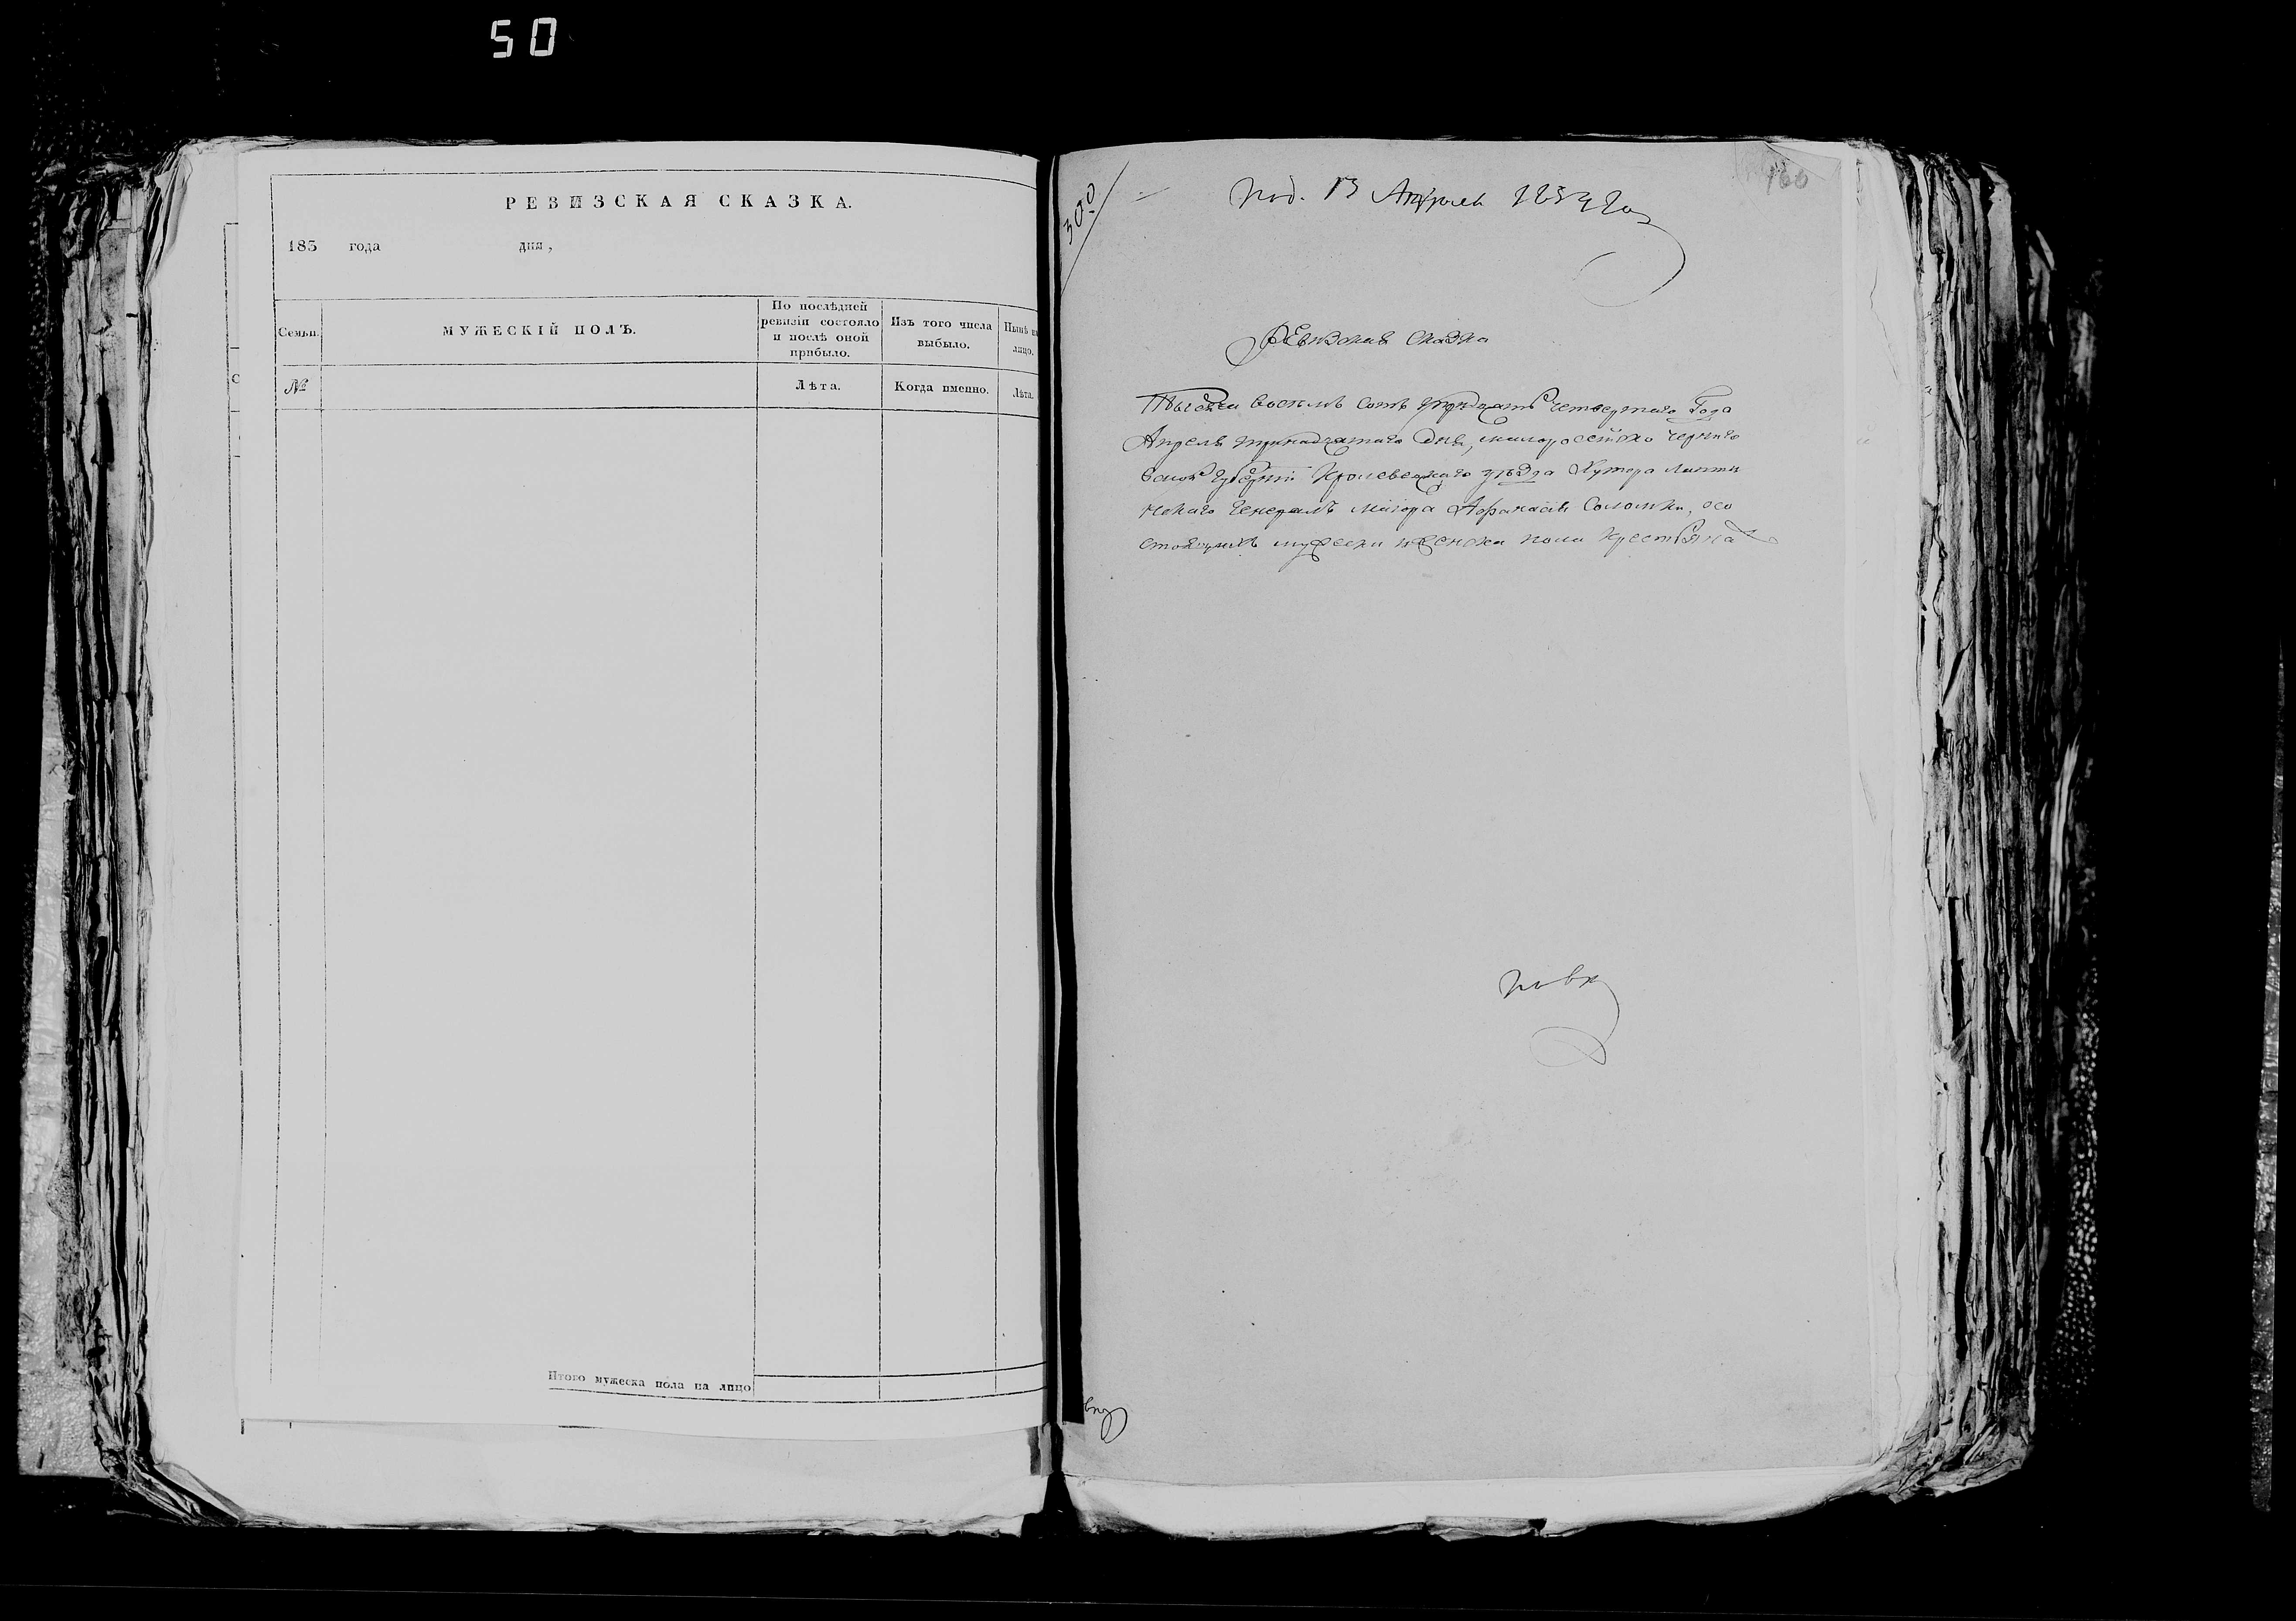 50
РЕВИЗСКАЯ СКАЗКА.
183 года дня,
Семьи.
МУЖЕСКІЙ ПОЛЪ.
По послѣдней
ревизіи состояло
и послѣ оной
прибыло.
Изъ того числа
выбыло.
Нынѣ на
лицо.
№
Лѣта.
Когда именно.
Лѣта.
Итого мужеска пола на лицо
300
Под. 13 Апреля 1834 го
160
Ревизская Сказка
Тысяча восемь сотъ тридцать четвертаго Года
Апреля тринадцатаго дня, малоросійско черниго
вской Губерніи Кролевецкаго уѣзда Хутора
Генералъ Маіора Афанасія Соломки, осо
стоящихъ мужеска и женска пола крестьянахъ